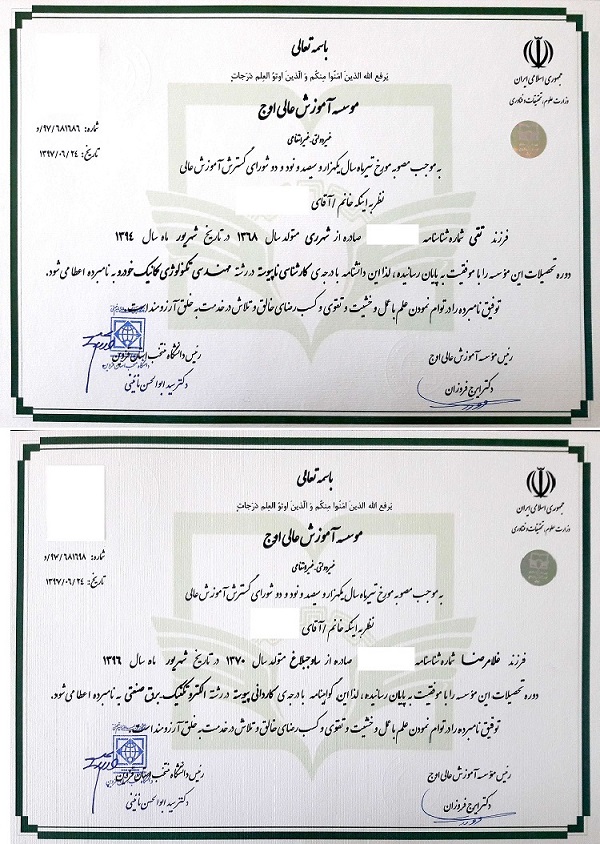 باسمه تعالی
یرفع الله الذین آمنوا منکم و الّذین اوتوُ العِلم دَرَجات
جمهوری اسلامی ایران
وزارت علوم، تحقیقات و فناوری
موسسه آموزش عالی اوج
غیردولتی-غیرانتفاعی
شماره: ۹۷/۶۸۱۶۸۶/د
تاریخ: ۱۳۹۷/۰۶/۲۴
به موجب مصوبه مورخ تیرماه سال یکهزار و سیصد و نود و دو شورای گسترش آموزش عالی
نظر به اینکه خانم / آقای
فرزند تقی شماره شناسنامه صادره از شهرری متولد سال ۱۳۶۸ در تاریخ شهریور ماه سال ۱۳۹۴
دوره تحصیلات این مؤسسه را با موفقیت به پایان رسانیده، لذا این دانشنامه با درجه‌ی کارشناسی ناپیوسته در رشته مهندسی تکنولوژی مکانیک خودرو به نامبرده اعطا می‌شود.
توفیق نامبرده را در توام نمودن علم با عمل و خشیت و تقوی و کسب رضای خالق و تلاش در خدمت به خلق آرزومند است.
رئیس مؤسسه آموزش عالی اوج
دکتر ایرج فروزان
رئیس دانشگاه منتخب استان قزوین
دکتر سید ابوالحسن نائینی
باسمه تعالی
یرفع الله الذین آمنوا منکم و الّذین اوتوُ العِلم دَرَجات
جمهوری اسلامی ایران
وزارت علوم، تحقیقات و فناوری
موسسه آموزش عالی اوج
غیردولتی-غیرانتفاعی
شماره: ۹۷/۶۸۱۶۹۸/د
تاریخ: ۱۳۹۷/۰۶/۲۴
به موجب مصوبه مورخ تیرماه سال یکهزار و سیصد و نود و دو شورای گسترش آموزش عالی
نظر به اینکه خانم / آقای
فرزند غلامرضا شماره شناسنامه صادره از ساوجبلاغ متولد سال ۱۳۷۰ در تاریخ شهریور ماه سال ۱۳۹۶
دوره تحصیلات این مؤسسه را با موفقیت به پایان رسانیده، لذا این گواهینامه با درجه‌ی کاردانی پیوسته در رشته الکتروتکنیک برق صنعتی به نامبرده اعطا می‌شود.
توفیق نامبرده را در توام نمودن علم با عمل و خشیت و تقوی و کسب رضای خالق و تلاش در خدمت به خلق آرزومند است.
رئیس مؤسسه آموزش عالی اوج
دکتر ایرج فروزان
رئیس دانشگاه منتخب استان قزوین
دکتر سید ابوالحسن نائینی